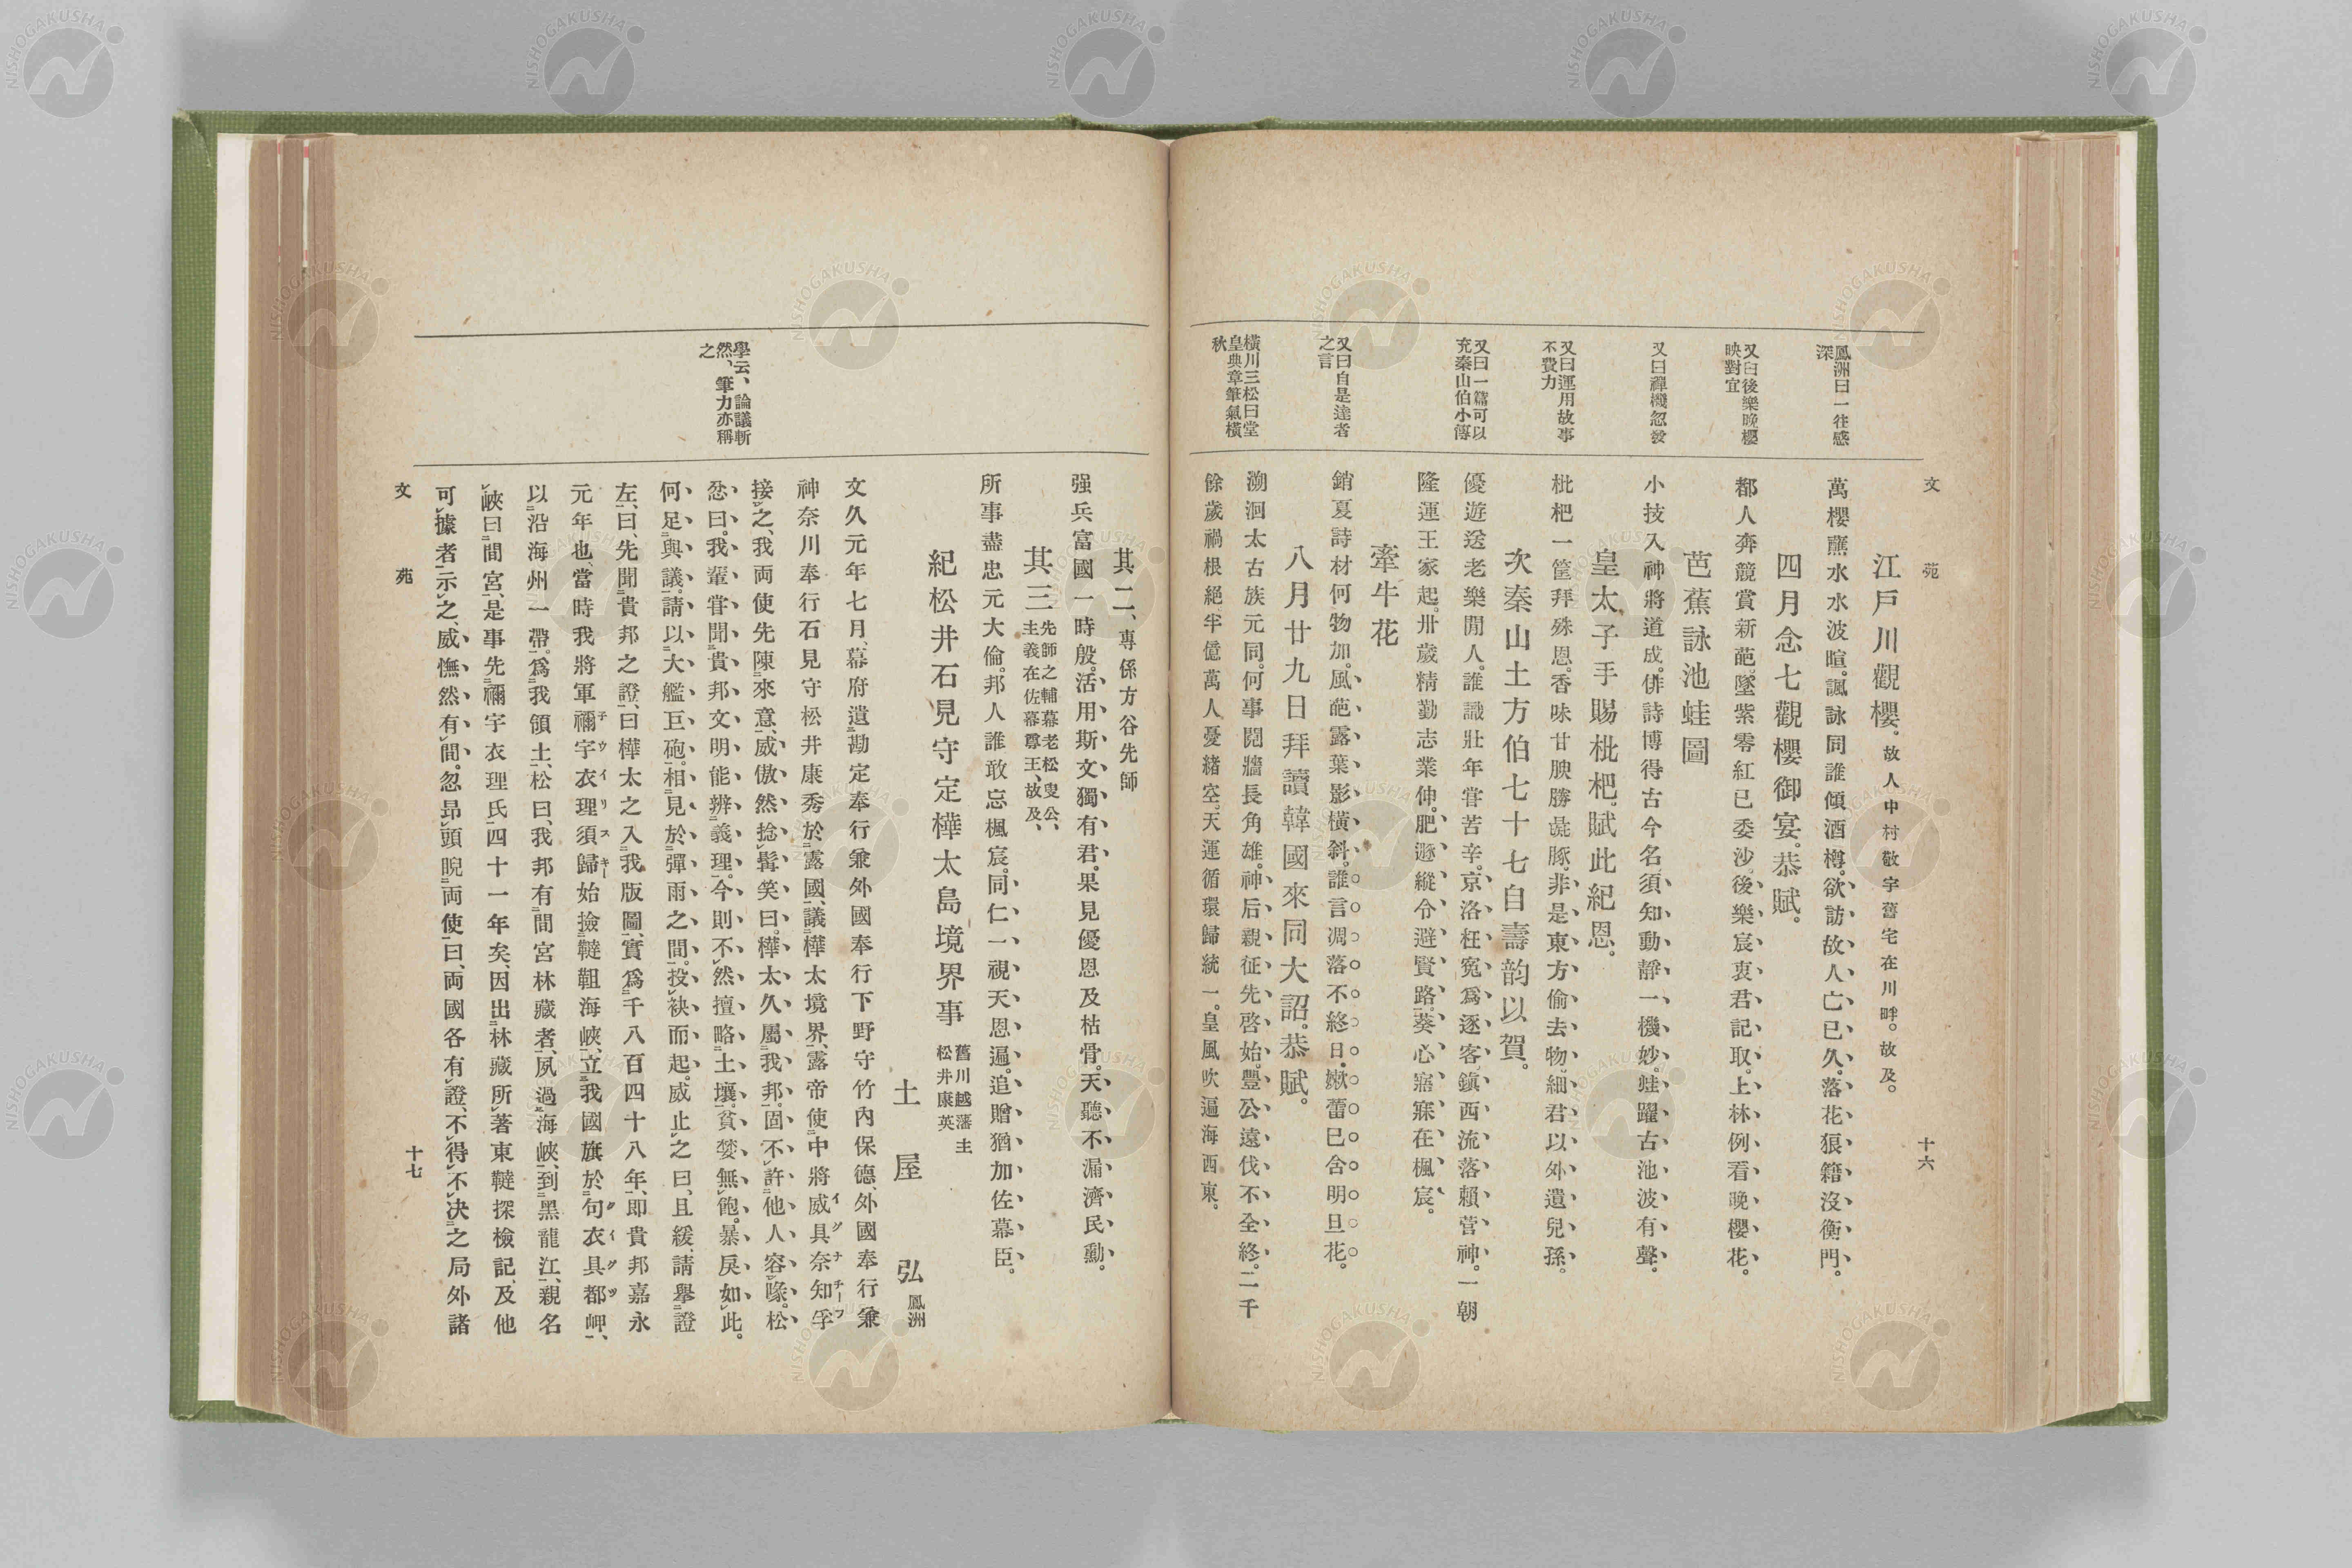 文苑
十六
鳳洲曰一往感
深
又曰後樂晩櫻
映對宜
又曰禪機忽發
又曰運用故事
不費力
又曰一篇可以
充秦山伯小傳
又曰自是達者
之言
橫川三松曰堂
皇典章筆氣橫
秋
江戶川觀櫻。故人中村敬宇舊宅在川畔。故及。
萬櫻蘸水水波暄。諷詠同誰傾酒樽。欲訪故人亡已久。落花狼籍沒衡門。
四月念七觀櫻御宴。恭賦。
都人奔競賞新葩。墜紫零紅已委沙。後樂宸衷君記取。上林例看晩櫻花。
芭蕉詠池蛙圖
小技入神將道成。俳詩博得古今名。須知動靜一機妙。蛙躍古池波有聲。
皇太子手賜枇杷。賦此紀恩。
枇杷一筐拜殊恩。香味甘腴勝彘豚。非是東方偷去物。細君以外遺兒孫。
次秦山土方伯七十七自壽韵以賀。
優遊送老樂閒人。誰識壯年甞苦辛。京洛枉寃爲逐客。鎮西流落賴菅神。一朝
隆運王家起。卅歲精勤志業伸。肥遯縱令避賢路。葵心寤寐在楓宸。
牽牛花
銷夏詩材何物加。風葩露葉影橫斜。誰言凋落不終日。嫩蕾巳含明旦花。
八月廿九日拜讀韓國來同大詔。恭賦。
溯洄太古族元同。何事鬩牆長角雄。神后親征先啓始。豐公遠伐不全終。二千
餘歲禍根絕。半億萬人憂緖空。天運循環歸統一。皇風吹遍海西東。
其二、專係方谷先師
强兵富國一時殷。活用斯文獨有君。果見優恩及枯骨。天聽不漏濟民勳。
其三 先師之輔幕老松叟公、
主義在佐幕尊王、故及、
所事盡忠元大倫。邦人誰敢忘楓宸。同仁一視天恩遍。追贈猶加佐幕臣。
學云、論議斬
然、筆力亦稱
之
紀松井石見守定樺太島境界事 舊川越藩主
松井康英
土屋弘 鳳洲
文久元年七月、幕府遣勘定奉行兼外國奉行下野守竹內保德、外國奉行兼
神奈川奉行石見守松井康秀於露國、議樺太境界、露帝使中將威具奈知孚
イグナチーフ
接之、我両使先陳來意、威傲然捻髯笑曰。樺太久屬我邦。固不許他人容喙。松
忿曰。我輩甞聞貴邦文明能辨義理。今則不然擅略土壤。貧婪無飽。暴戾如此。
何足與議。請以大艦巨砲。相見於彈雨之間。投袂而起。威止之曰、且緩、請擧證
左、曰、先聞貴邦之證、曰樺太之入我版圖、實爲千八百四十八年、即貴邦嘉永
元年也、當時我將軍禰宇衣理須歸始撿韃靼海峽、立我國旗於句衣具都岬、
チウイリスキー クイグツ
以沿海州一帶。爲我領土、松曰、我邦有間宮林藏者、夙過海峽、到黑龍江、親名
峽曰間宮、是事先禰宇衣理氏四十一年矣、因出林藏所著東韃探檢記、及他
可據者示之、威憮然有間。忽昂頭睨両使曰、両國各有證、不得不决之局外諸
文苑
十七